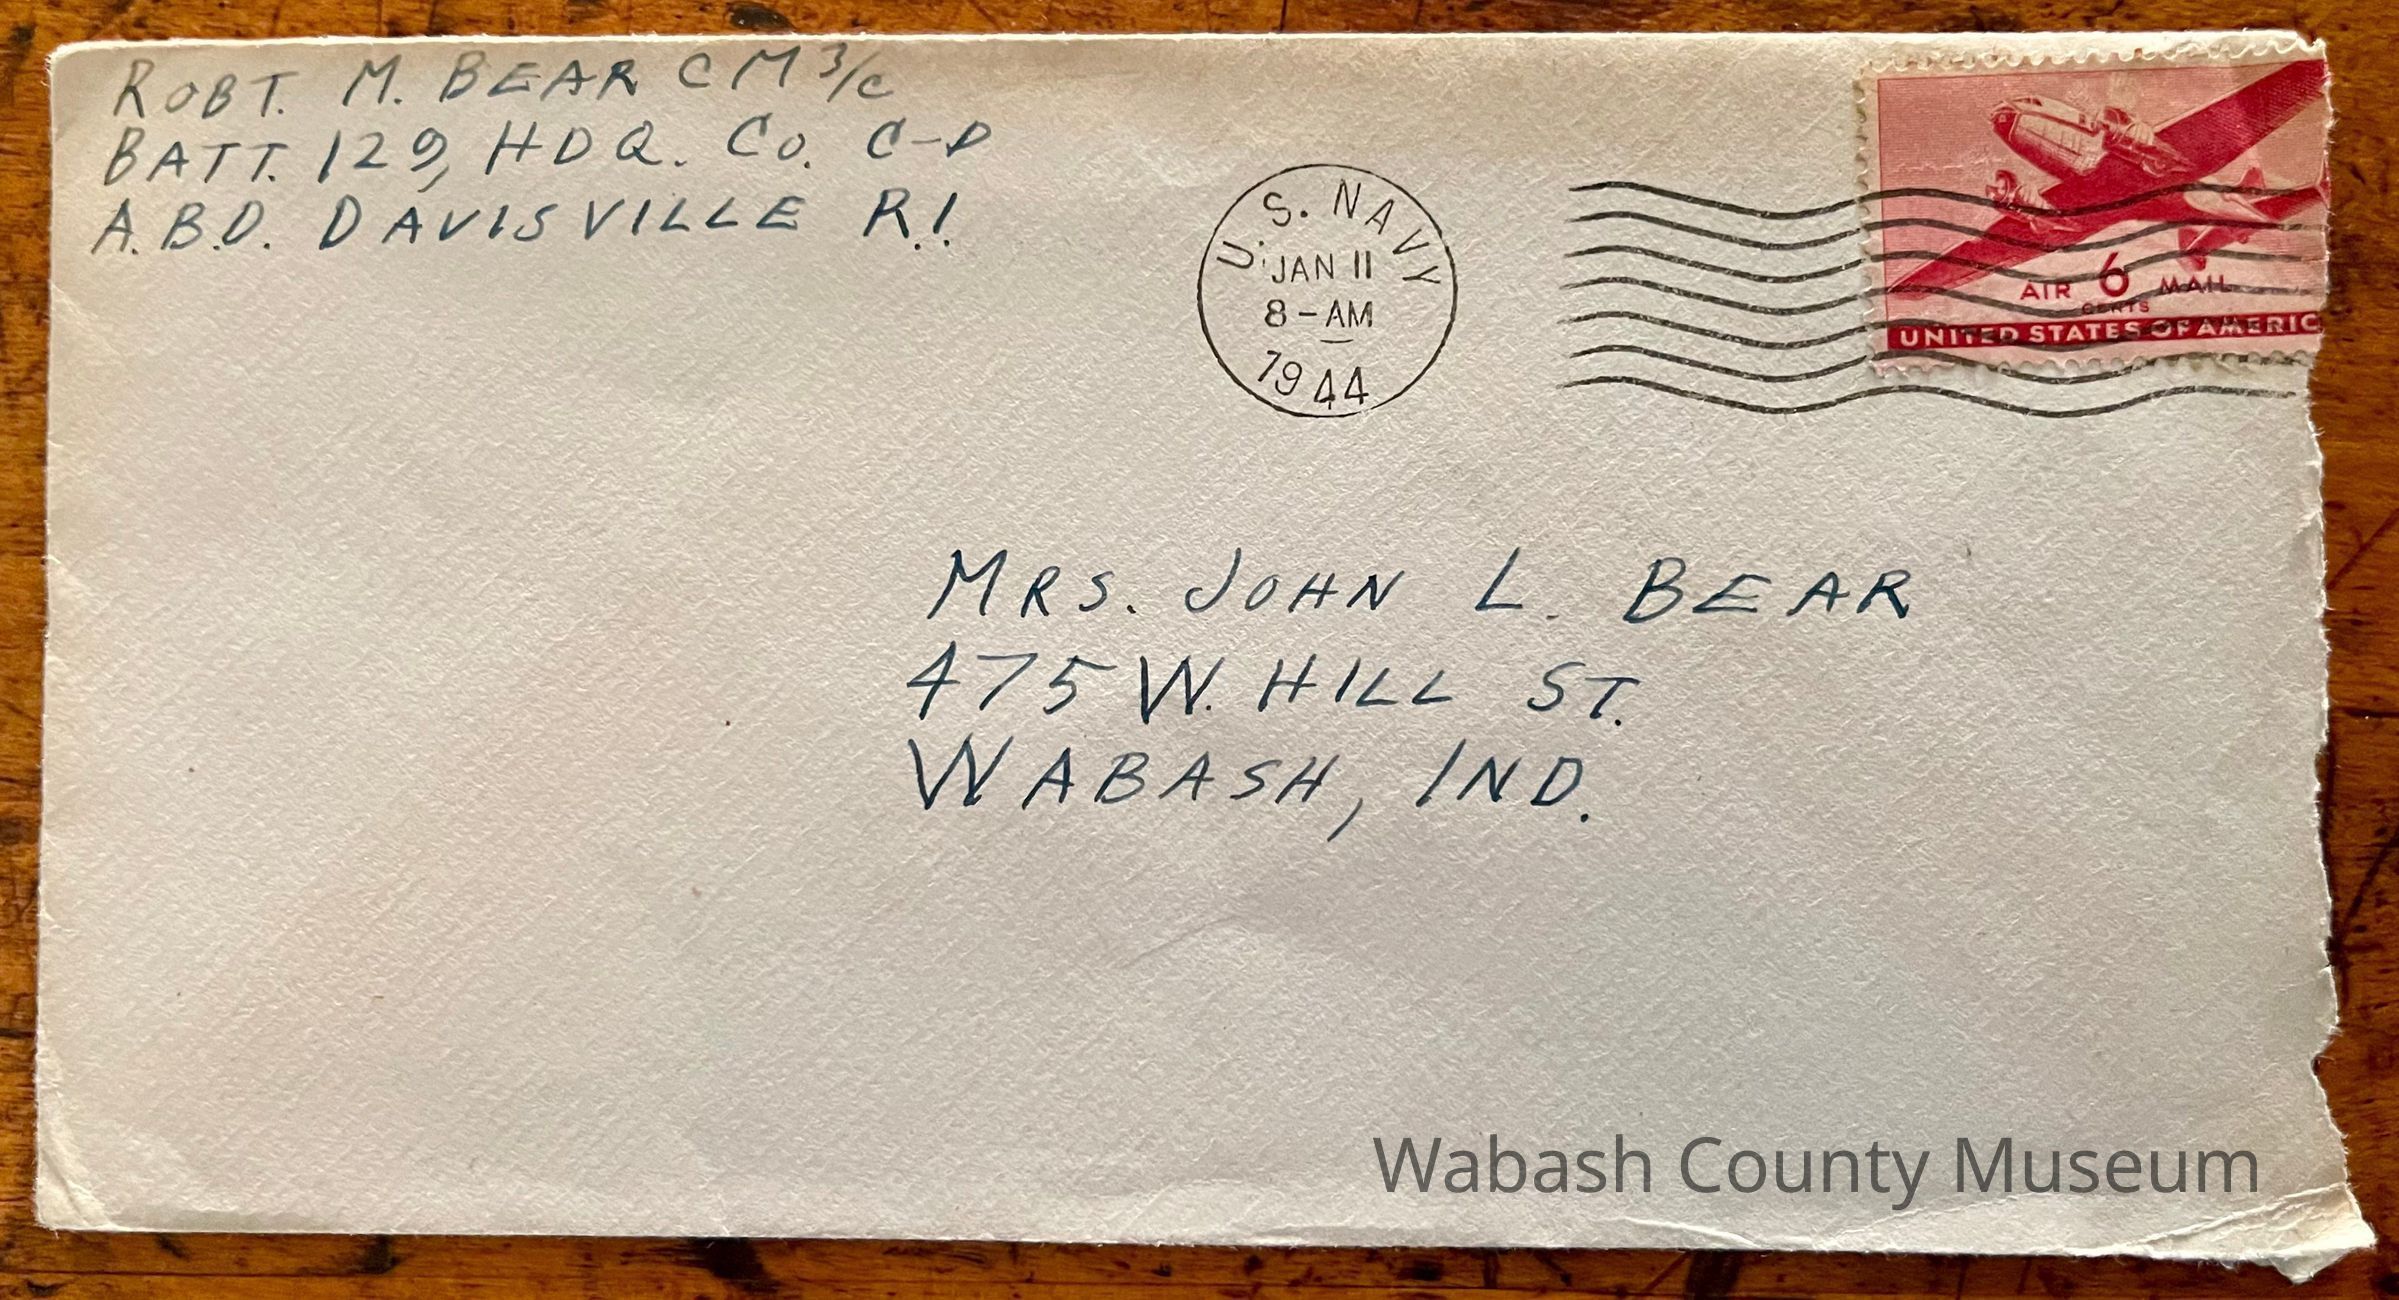 ROBT. M. BEAR CM 3/c
BATT. 129, HDQ. Co. C-D
A.B.D. DAVISVILLE R.I.
U.S. NAVY
JAN 11
8-AM
1944
AIR 6 MAIL
CENTS
UNITED STATES OF AMERIC
MRS. JOHN L. BEAR
475 W. HILL ST.
WABASH, IND.
Wabash County Museum